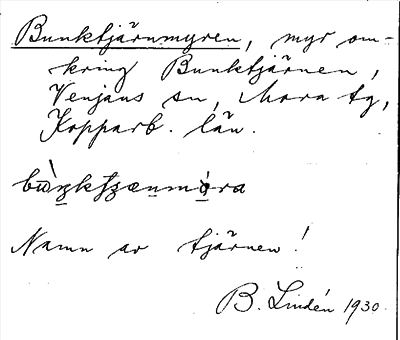 Bunktjärnmyren, myr om-
kring Bunktjärnen,
Venjans sn, Mora tg,
Kopparb. län.
Namn av tjärnen!
B. Lindén 1930.